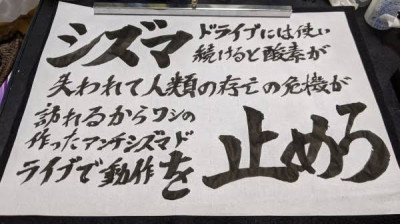 シズマ ドライブには使い
続けると酸素が
失われて人類の存亡の危機が
訪れるからワシの
作ったアンチシズマド
ライブで動作を
止めろ